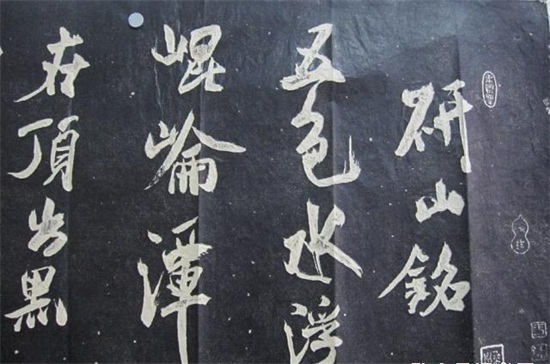 研山銘
五色水浮
崐崘潭
在頂出黑